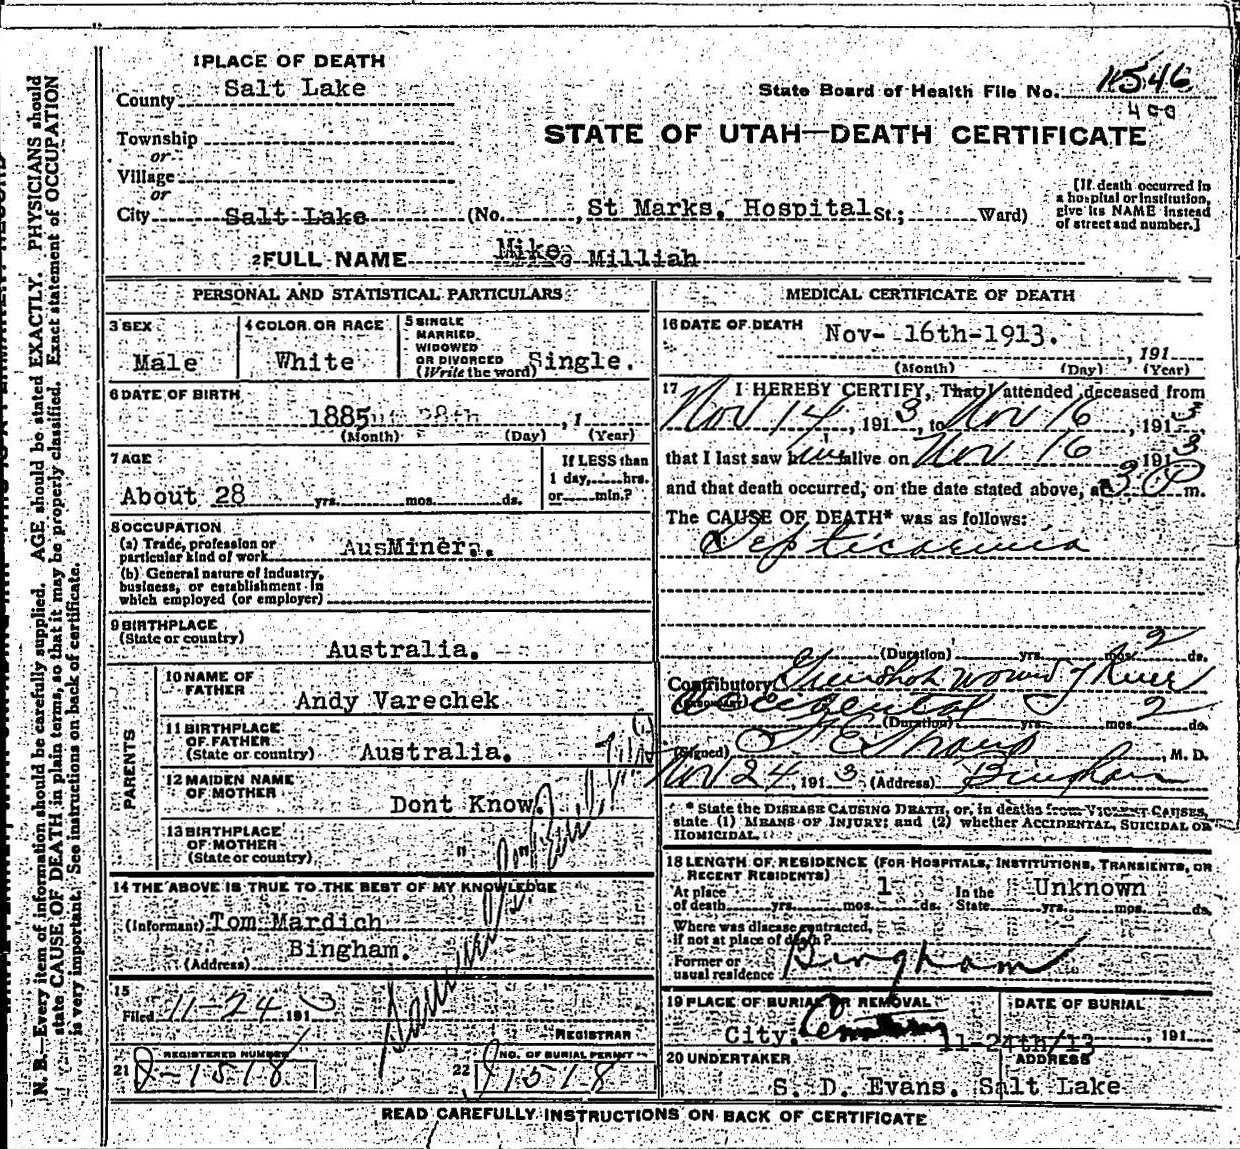 1 PLACE OF DEATH
County Salt Lake
State Board of Health File No. 11546
400
Township
or
Village
or
STATE OF UTAH—DEATH CERTIFICATE
City Salt Lake (No. , St Marks. Hospital St.; Ward)
[If death occurred in
a hospital or institution,
give its NAME instead
of street and number.]
2 FULL NAME Mike Milliah
PERSONAL AND STATISTICAL PARTICULARS
3 SEX
Male
4 COLOR OR RACE
White
5 SINGLE
MARRIED
WIDOWED
OR DIVORCED
(Write the word) Single.
6 DATE OF BIRTH
1885 28th , 1
(Month) (Day) (Year)
7 AGE
About 28 yrs. mos. ds.
If LESS than
1 day, hrs.
or min.?
8 OCCUPATION
(a) Trade, profession or
particular kind of work AusMiner.
(b) General nature of industry,
business, or establishment in
which employed (or employer)
9 BIRTHPLACE
(State or country)
Australia.
PARENTS
10 NAME OF
FATHER
Andy Varechek
11 BIRTHPLACE
OF FATHER
(State or country) Australia.
12 MAIDEN NAME
OF MOTHER
Dont Know.
13 BIRTHPLACE
OF MOTHER
(State or country) " "
14 THE ABOVE IS TRUE TO THE BEST OF MY KNOWLEDGE
(Informant) Tom Mardich
Bingham.
(Address)
15
Filed 11-24 1913
REGISTRAR
REGISTERED NUMBER
21
NO. OF BURIAL PERMIT
22
MEDICAL CERTIFICATE OF DEATH
16 DATE OF DEATH Nov- 16th-1913.
, 191
(Month) (Day) (Year)
17 I HEREBY CERTIFY, That I attended deceased from
Nov 14, 1913, to Nov 16, 1913,
that I last saw him alive on Nov 16 1913
and that death occurred, on the date stated above, at 3 P m.
The CAUSE OF DEATH* was as follows:
Septicaemia
(Duration) yrs. mos. 2 ds.
Contributory Gunshot wound of Knee
(SECONDARY) Accidental
(Duration) yrs. mos. 2 ds.
(Signed) M. D.
Nov 24, 1913 (Address) Bingham
* State the DISEASE CAUSING DEATH, or, in deaths from VIOLENT CAUSES,
state (1) MEANS OF INJURY; and (2) whether ACCIDENTAL, SUICIDAL OR
HOMICIDAL.
18 LENGTH OF RESIDENCE (FOR HOSPITALS, INSTITUTIONS, TRANSIENTS, OR
RECENT RESIDENTS)
At place
of death yrs. mos. 1 ds.
In the
State Unknown yrs. mos. ds.
Where was disease contracted,
if not at place of death?
Former or
usual residence Bingham
19 PLACE OF BURIAL OR REMOVAL
City. Cemetery
DATE OF BURIAL
11-24th/13 , 191
20 UNDERTAKER
ADDRESS
S. D. Evans. Salt Lake
READ CAREFULLY INSTRUCTIONS ON BACK OF CERTIFICATE
N. B.—Every item of information should be carefully supplied. AGE should be stated EXACTLY. PHYSICIANS should
state CAUSE OF DEATH in plain terms, so that it may be properly classified. Exact statement of OCCUPATION
is very important. See instructions on back of certificate.